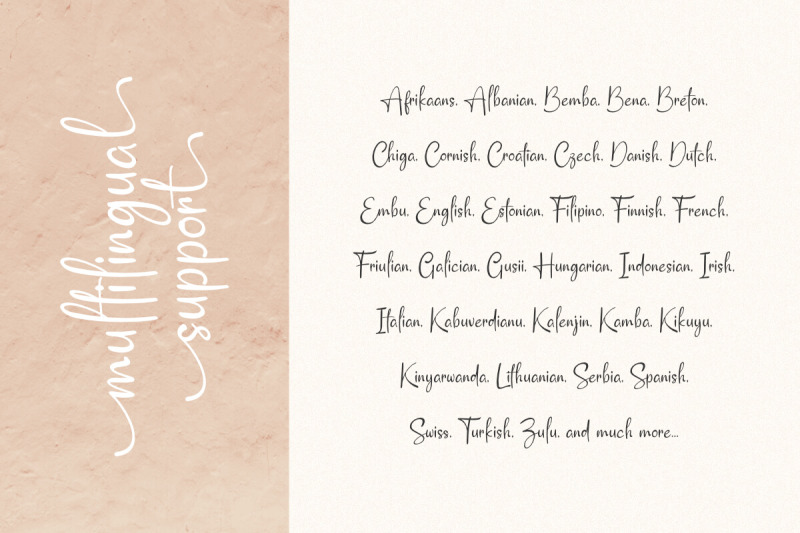 multilingual
support
Afrikaans, Albanian, Bemba, Bena, Breton,
Chiga, Cornish, Croatian, Czech, Danish, Dutch,
Embu, English, Estonian, Filipino, Finnish, French,
Friulian, Galician, Gusii, Hungarian, Indonesian, Irish,
Italian, Kabuverdianu, Kalenjin, Kamba, Kikuyu,
Kinyarwanda, Lithuanian, Serbia, Spanish,
Swiss, Turkish, Zulu, and much more...